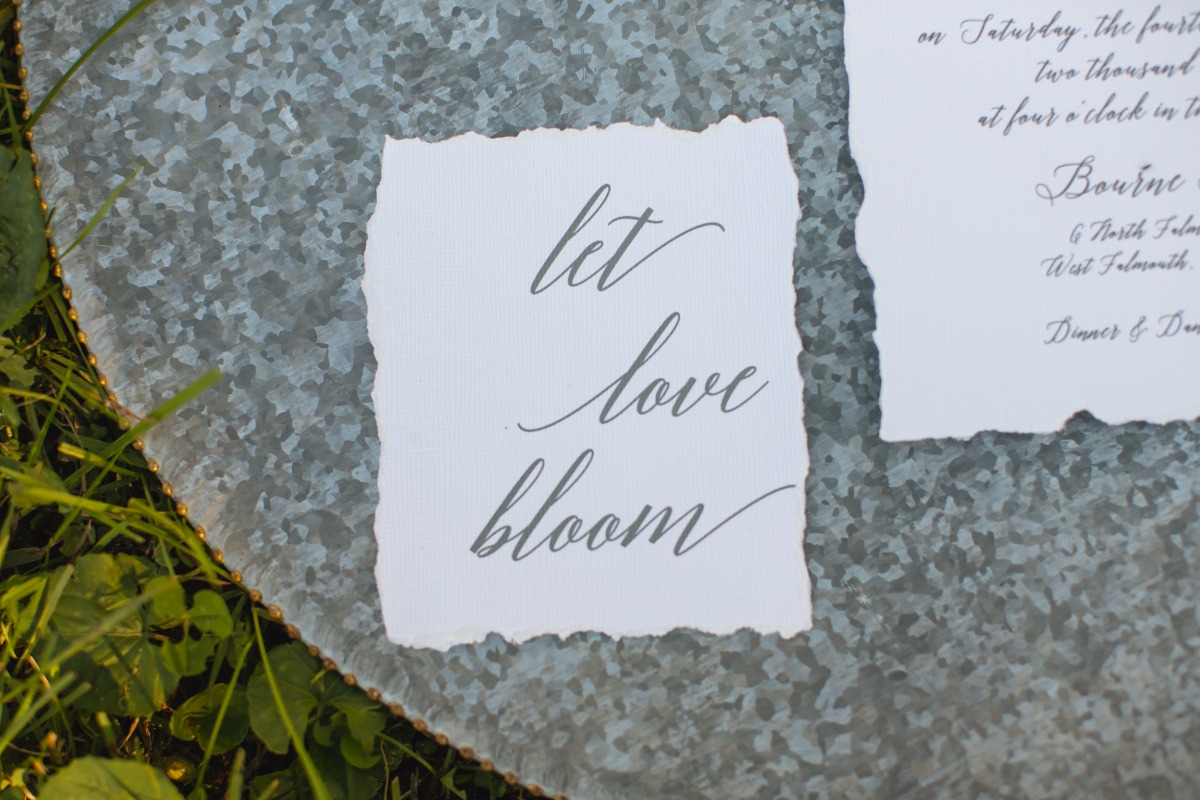 let
love
bloom
on Saturday, the
two thousand
at four o'clock in
Bourne
6 North
West Falmouth,
Dinner &